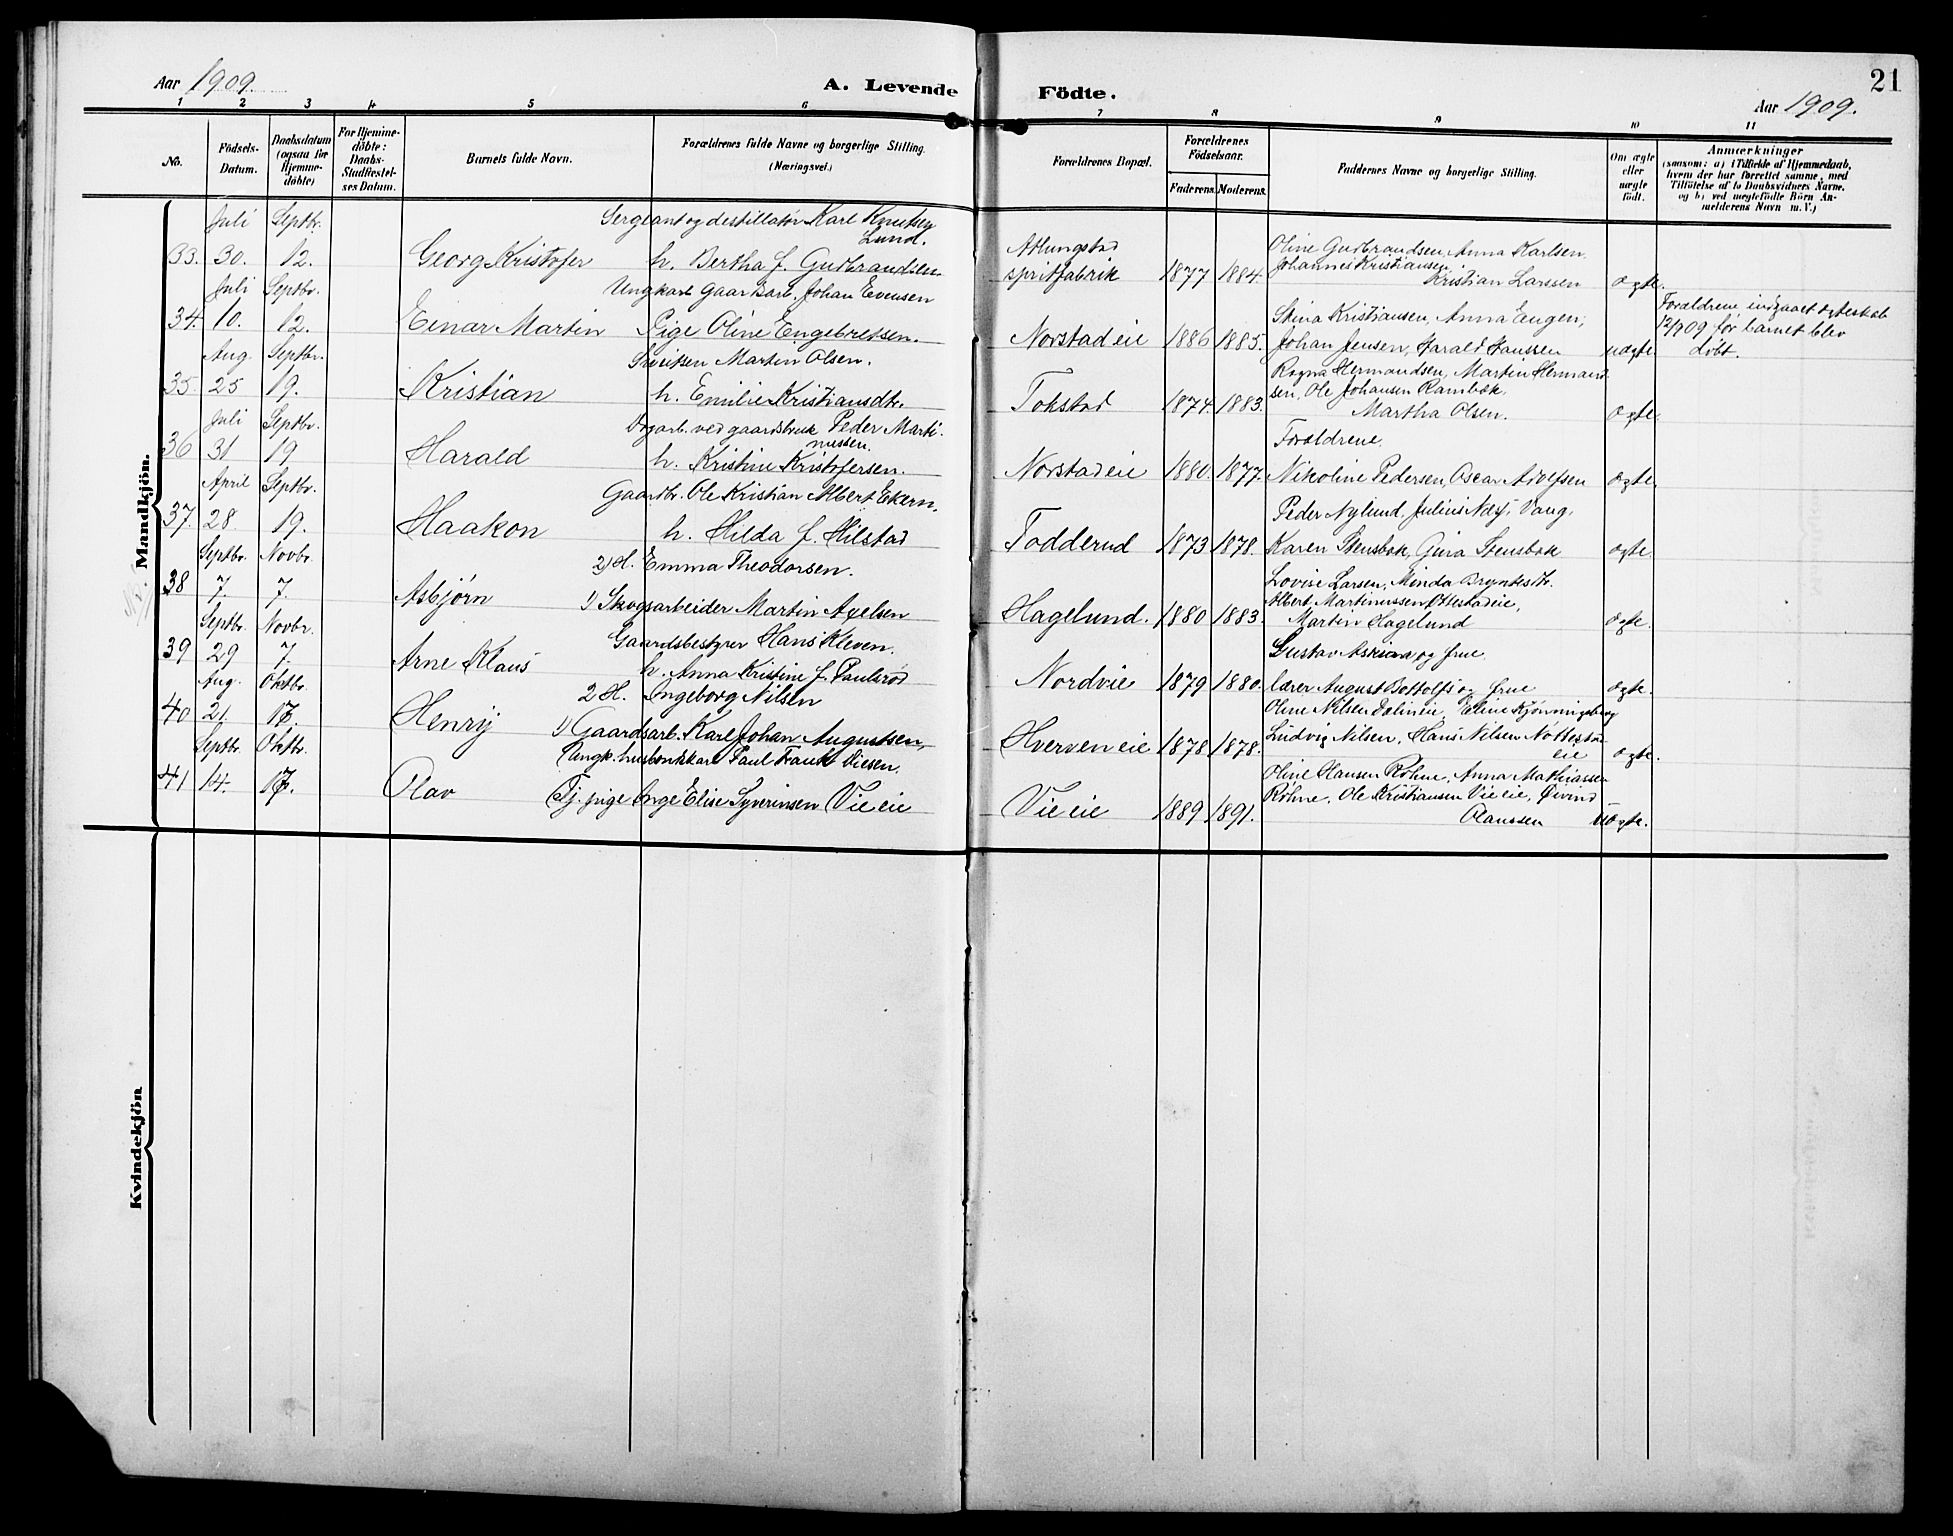 Aar 1909.
A. Levende Födte.
21
Aar 1909.
1 2 3 4 5 6 7 8 9 10 11
No.
Födsels-
Datum.
Daabsdatum
(ogsaa for
Hjemme-
döbte)
For Hjemme-
döbte:
Daabs-
Stadfæstel-
ses Datum.
Barnets fulde Navn.
Forældrenes fulde Navne og borgerlige Stilling
(Næringsvei.)
Forældrenes Bopæl.
Forældrenes
Födselsaar.
Faderens. Moderens.
Faddernes Navne og borgerlige Stilling.
Om ægte
eller
uægte
födt.
Anmærkninger
(saasom: a) i Tilfælde af Hjemmedaab,
hvem der har forrettet samme, med
Tilföielse af to Daabsvidners Navne,
og b) ved uægtefödte Börn An-
melderens Navn m. V.)
Mandkjön.
Juli Septbr. Sergeant og destillatör Karl Knutsen
Lund.
33. 30. 12. Georg Kristofer h. Bertha f. Gudbrandsen
Atlungstad
spritfabrik 1877 1884.
Oline Gudbrandsen, Anna Karlsen,
Johannes Kristiansen,
Kristian Larssen ægte.
Juli Septbr. Ungkarl Gaardarb. Johan Evensen
34. 10. 12. Einar Martin Pige Oline Engebretsen.
Norstad eie 1886 1885.
Stina Kristiansen, Anna Engen,
Johan Jensen, Harald Hanssen uægte.
Forældrene indgaaet ægteskab
12/9 09 før barnet blev
døbt.
Aug. Septbr. Martin Olsen.
35. 25 19. Kristian h. Emilie Kristiansdtr.
Tokstad 1874. 1883.
Ragna Hermandsen, Martin Hermand
sen, Ole Johansen Rambæk,
Martha Olsen. ægte.
Juli Septbr. Dagarb. ved gaardsbruk Peder Marti-
nussen.
36 31 19 Harald h. Kristine Kristofersen.
Norstad eie 1880. 1877.
Forældrene,
Nikoline Pedersen, Oscar Adolfsen ægte.
April Septbr. Gaardbr. Ole Kristian Albert Ekern.
37. 28. 19. Haakon h. Hilda f. Hilstad
Todderud 1873 1878.
Peder Nylund, Julius Næs, Vang,
Karen Stensbak, Gina Stensbak ægte.
Septbr. Novbr. 2) H. Emma Theodorsen.
38 7. 7. Asbjørn 1) Skogsarbeider Martin Axelsen
Hagelund. 1880 1883.
Lovise Larsen, Minda
Albert Martinussen Ottestad eie,
Martin Hagelund ægte.
Septbr. Novbr. Gaardsbestyrer Hans Kleven.
39 29 7. Arne Klaus h. Anna Kristine f. Paulsrød
Nordvie 1879 1880.
Gustav og frue,
lærer August Bottolfs og frue ægte.
Aug. Oktbr. 2 H. Ingeborg Nilsen
40 21. 17. Henry 1) Gaardsarb. Karl Johan Augustsen,
Hverven eie 1878 1878.
Oline Nilsen eie, Eline
Ludvig Nilsen, Hans Nilsen
eie ægte.
Septbr. Oktbr. Ungk. Paul Viesen.
41 14. 17. Olav Tj. pige Inga Elise Syverinsen Vie eie
Vie eie 1889 1891.
Oline Hansen Röhne, Anna Mathiassen
Röhne, Ole Kristiansen Vie eie, Øivind
Olaussen uægte.
Kvindekjön